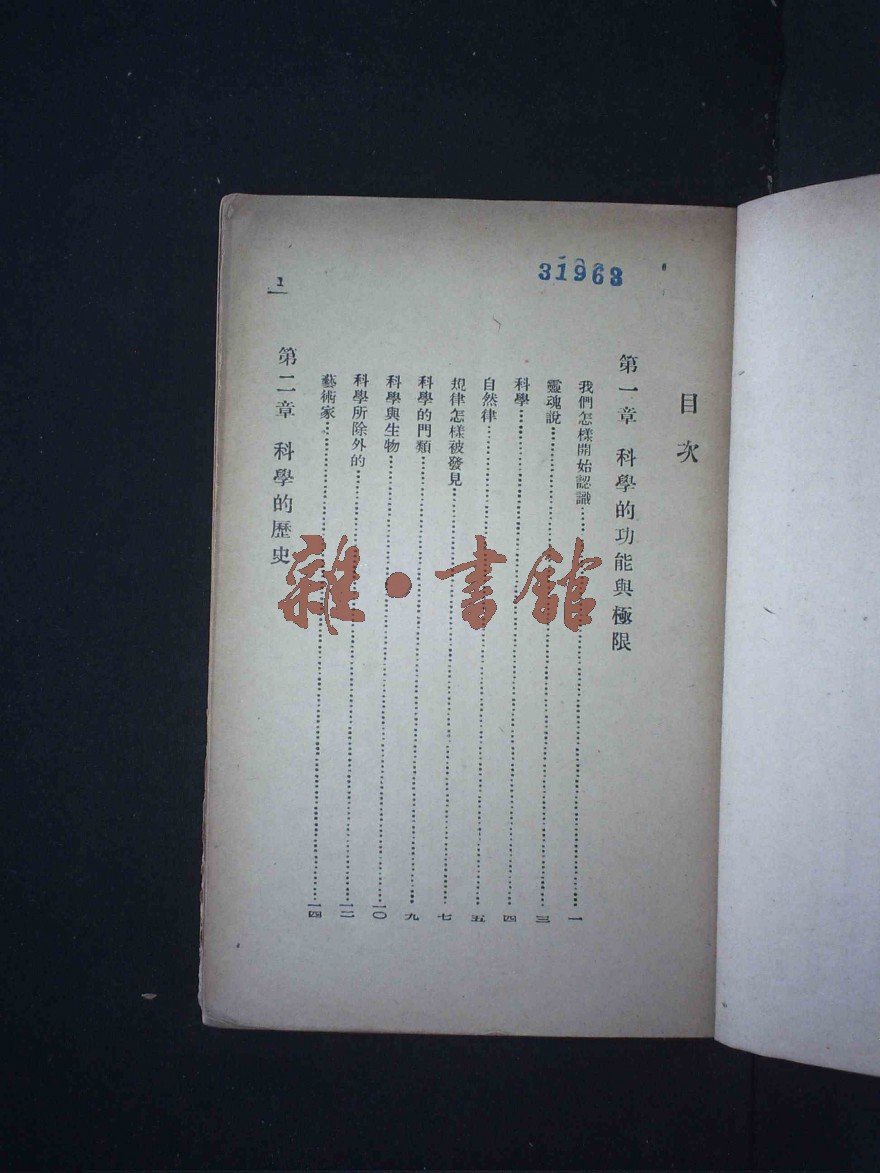 31963
目次
第一章 科學的功能與極限
我們怎樣開始認識……一
靈魂說……三
科學……四
自然律……五
規律怎樣被發見……七
科學的門類……九
科學與生物……一〇
科學所除外的……一二
藝術家……一四
第二章 科學的歷史
1
雜·書館